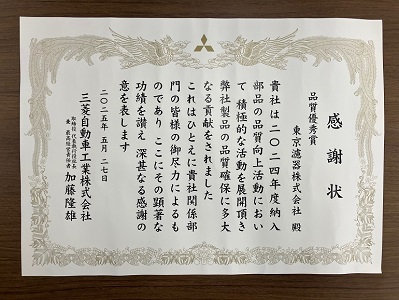 感謝状
品質優秀賞
東京濾器株式会社 殿
貴社は二〇二四年度納入
部品の品質向上活動におい
て 積極的な活動を展開頂き
弊社製品の品質確保に多大
なる貢献をされました
これはひとえに貴社関係部
門の皆様の御尽力によるも
のであり ここにその顕著な
功績を讃え 深甚なる感謝の
意を表します
二〇二五年 五月 二七日
三菱自動車工業株式会社
取締役 代表執行役社長
兼 最高経営責任者
加藤隆雄